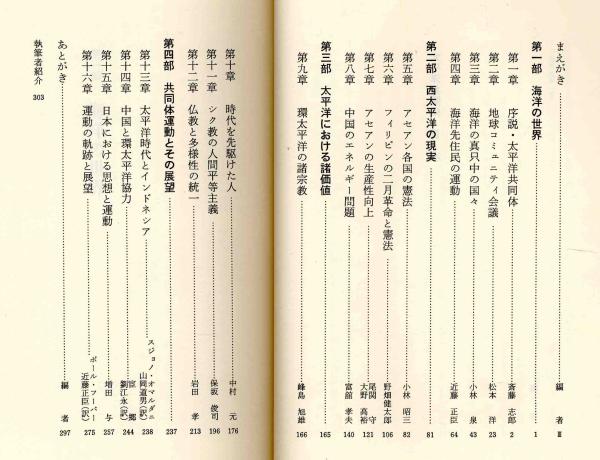 まえがき 編者 Ⅲ
第一部 海洋の世界 1
第一章 序説・太平洋共同体 斎藤志郎 2
第二章 地球コミュニティ会議 松本洋 23
第三章 海洋の真只中の国々 小林泉 43
第四章 海洋先住民の運動 近藤正臣 64
第二部 西太平洋の現実 81
第五章 アセアン各国の憲法 小林昭三 82
第六章 フィリピンの二月革命と憲法 野畑健太郎 106
第七章 アセアンの生産性向上 尾関守 大野高裕 121
第八章 中国のエネルギー問題 富舘孝夫 140
第三部 太平洋における諸価値 165
第九章 環太平洋の諸宗教 峰島旭雄 166
第十章 時代を先駆けた人 中村元 176
第十一章 シク教の人間平等主義 保坂俊司 196
第十二章 仏教と多様性の統一 岩田孝 213
第四部 共同体運動とその展望 237
第十三章 太平洋時代とインドネシア スジョノ・オマルダニ 山岡道男(訳) 238
第十四章 中国と環太平洋協力 宦郷 劉江永(訳) 244
第十五章 日本における思想と運動 増田与 257
第十六章 運動の軌跡と展望 ポール・フーバー 近藤正臣(訳) 275
あとがき 編者 297
執筆者紹介 303